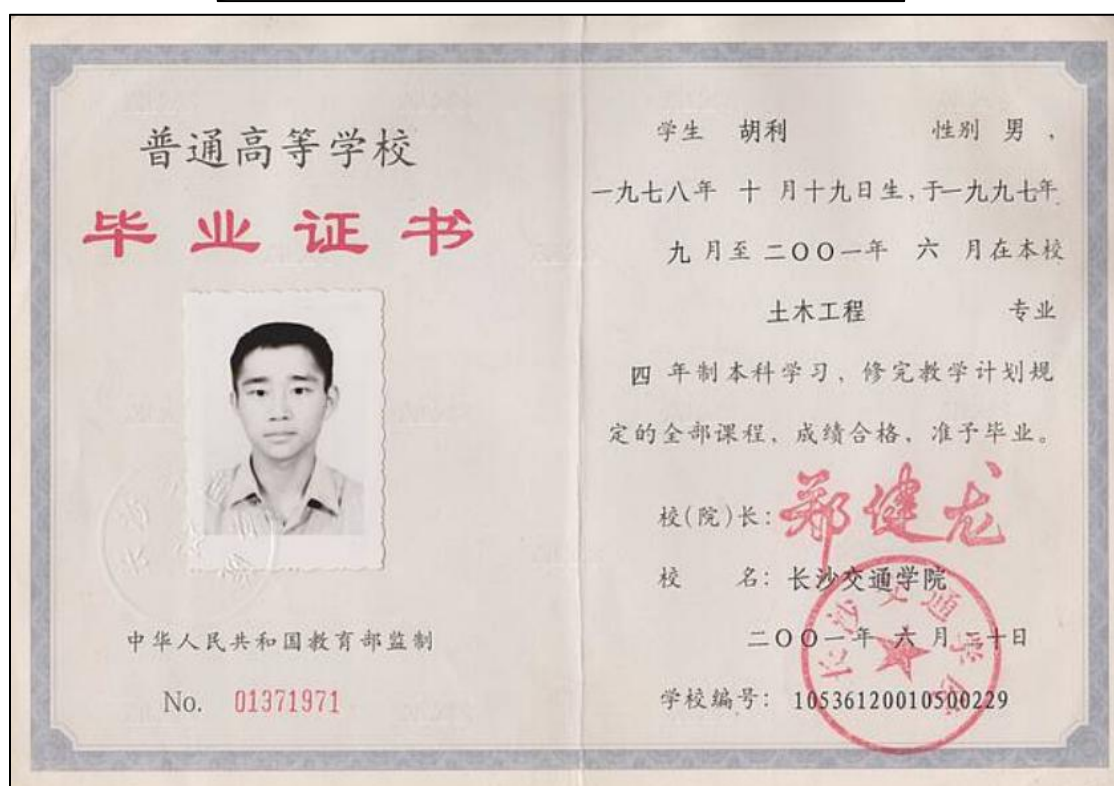 普通高等学校
毕业证书
中华人民共和国教育部监制
No. 01371971
学生 胡利 性别 男,
一九七八年 十 月十九日生,于一九九七年
九 月至 二〇〇一年 六 月在本校
土木工程 专业
四 年制本科学习、修完教学计划规
定的全部课程、成绩合格、准予毕业。
校(院)长: 郑健龙
校 名: 长沙交通学院
二〇〇一年 六 月二十日
学校编号: 10536120010500229
长沙交通学院